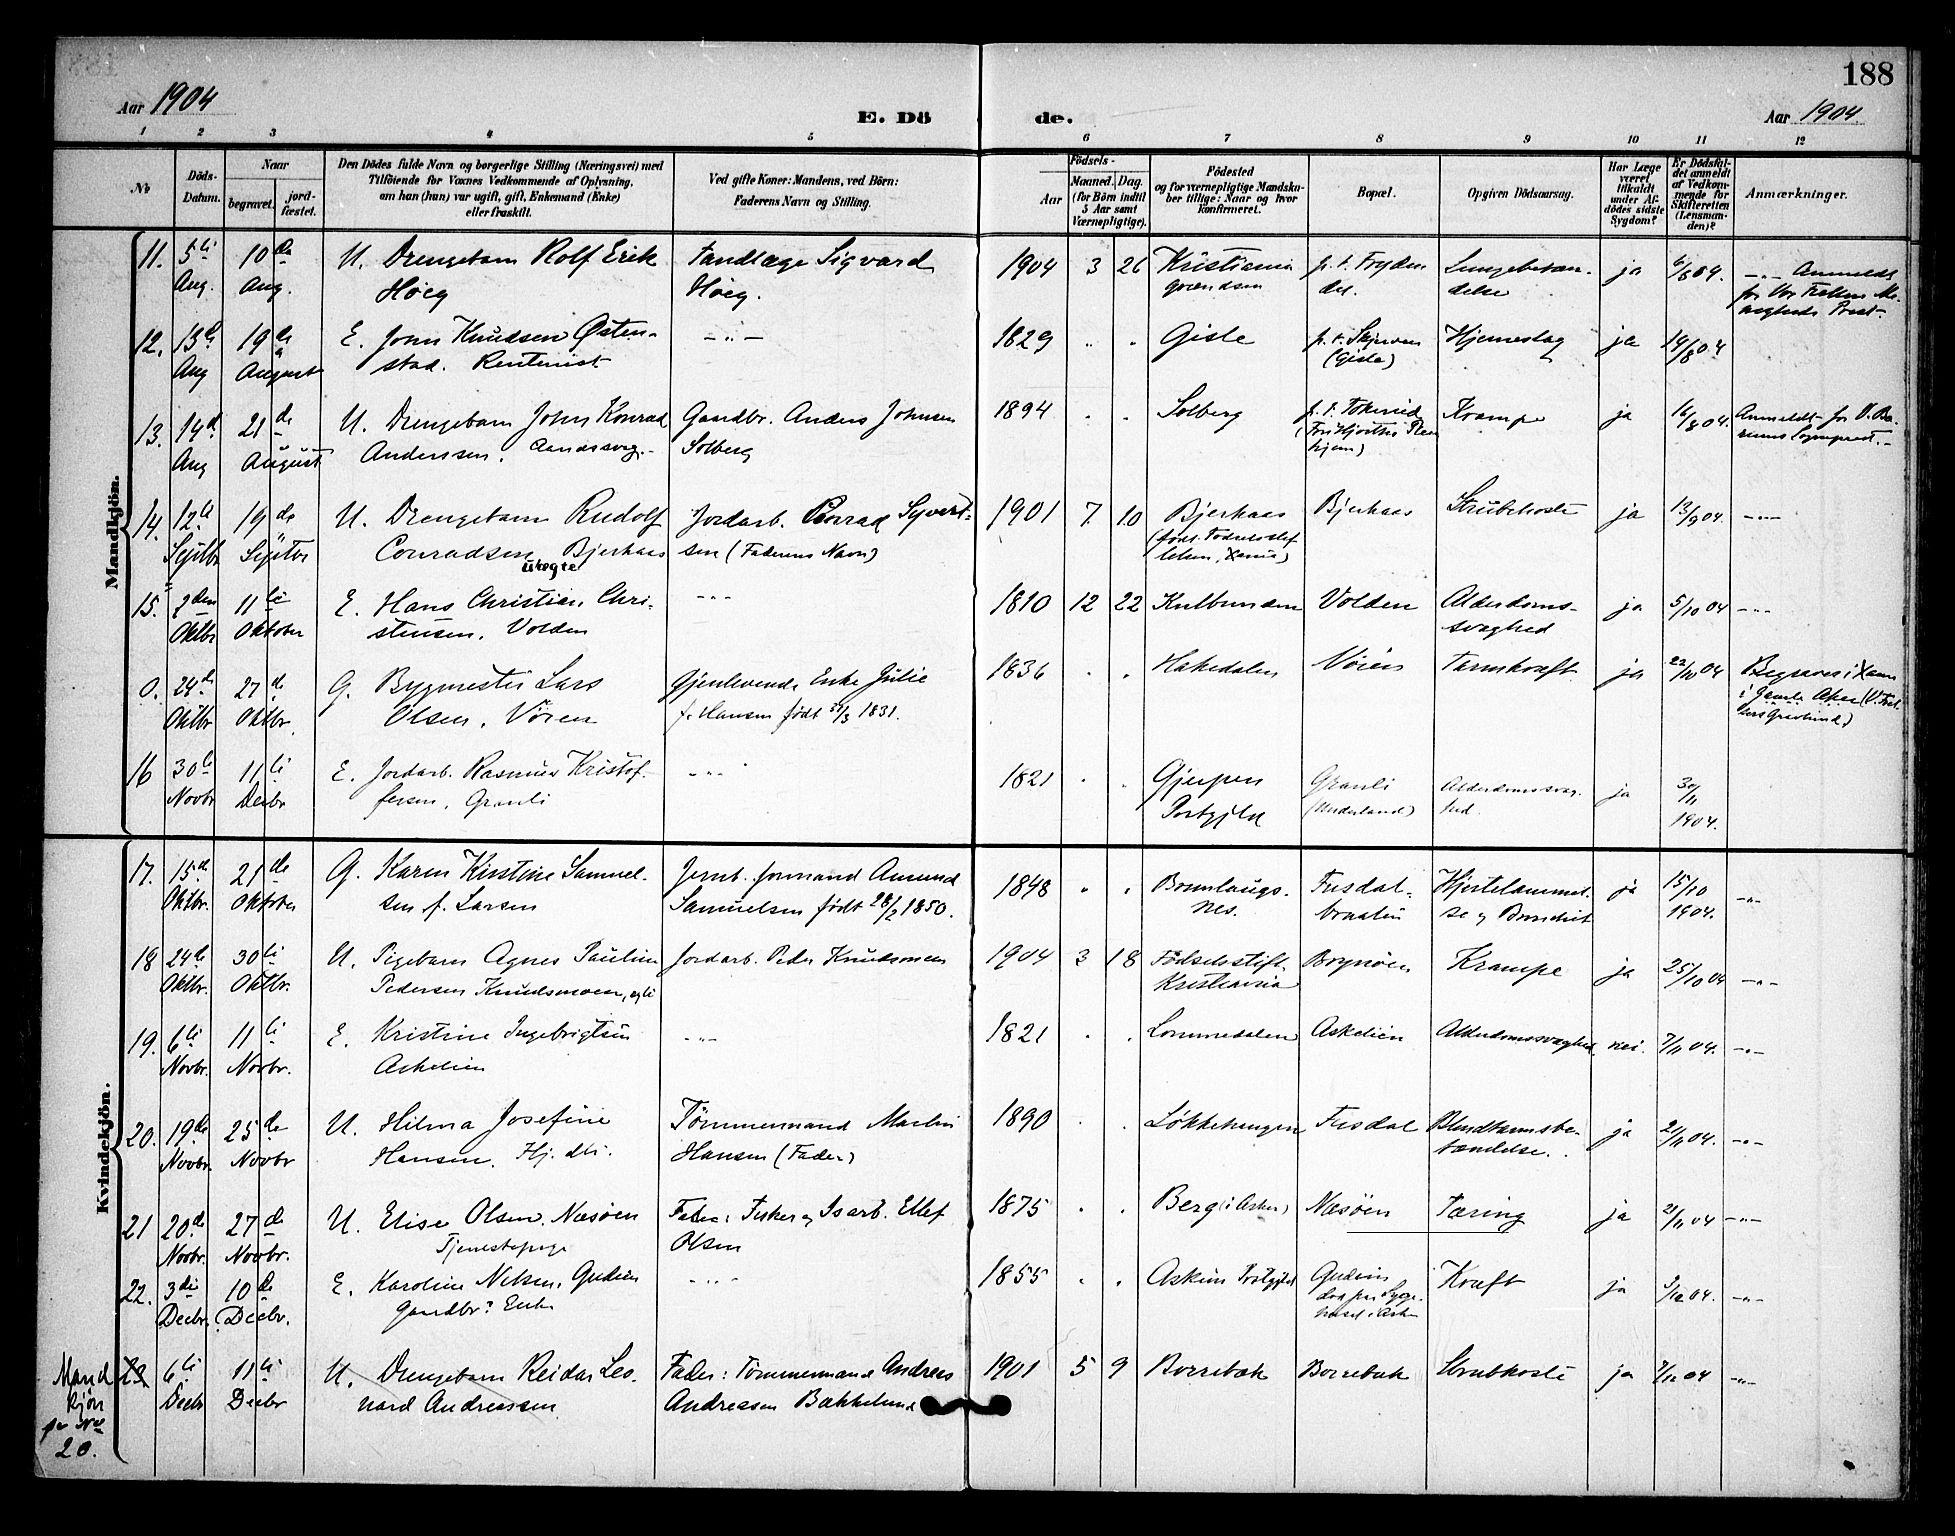 188
Aar 1904
E. Dö de.
Aar 1904.
1 2 3 4 5 6 7 8 9 10 11 12
No
Döds-Datum.
Naar
begravet. jordfæstet.
Den Dödes fulde Navn og borgerlige Stilling (Næringsvei) med
Tilföiende for Voxnes Vedkommende af Oplysning,
om han (hun) var ugift, gift, Enkemand (Enke)
eller fraskilt.
Ved gifte Koner: Mandens, ved Börn:
Faderens Navn og Stilling.
Födsels-
Aar Maaned. Dag.
(for Börn indtil
5 Aar samt
Værnepligtige).
Födested
og for værnepligtige Mandskaber tillige: Naar og hvor
konfirmeret.
Bopæl.
Opgiven Dödsaarsag.
Har Læge
været
tilkaldt
under Afdödes sidste
Sygdom?
Er Dödsfaldet anmeldt
af Vedkommende for
Skifteretten
(Lensmanden)?
Anmærkninger.
Mandkjön.
11. 5te 10de U. Drengebarn Rolf Erik Tandlæge Sigvard 1904 3 26 Kristiania p. t. Fryden Lungebetæn- ja 6/8 04. -"- Anmeldt
Aug. Aug. Høeg Høeg. dal. delse
12. 13de 19de E. John Knudsen Østen- -"- 1829 " " Gisle p. t. Skjerven Hjerneslag ja 14/8 04
Aug August stad. Rentenist (Gisle)
13. 14d 21de U. Drengebarn John Konrad Gaardbr. Anders Johnsen 1894 " " Solberg p. t. Krampe ja 16/8 04. Anmeldt for V. Bæ-
Aug August Anderssen, Aandssvag. Solberg rums Sogneprest.
14. 12te 19de U. Drengebarn Rudolf Jordarb. Conrad Syvert- 1901 7. 10 Bjerkaas Bjerkaas Strubehoste ja 13/9 04. -"-
Septbr Septbr Conradsen Bjerkaas sen (Faderens Navn)
uægte
15. 2den 11te E. Hans Christian Chri- -"- 1810 12 22 Volden Alderdoms- ja 5/10 04 -"-
Oktbr Oktober stensen. Volden svaghed
0. 24de 27de G. Bygmester Lars Gjenlevende Enke Julie 1836 " " Hakedalen Vøien Tarmkræft ja 22/10 04
Oktbr. Oktbr. Olsen, Vöien f. Hansen født 1831.
16 30te 11te E. Jordarb. Rasmus Kristof- -"- 1821 " " Gjerpen Granli Alderdomssvag- ja 30/11
Novbr Decbr fersen, Granli Prstgjeld hed. 1904.
Kvindekjön.
17. 15de 21de G. Karen Kirstine Samuel- Jernb. formand Amund 1848 " " ja 15/10 -"-
Oktbr. Oktober sen f. Larsen Samuelsen født 28/2 1850. 1904.
18 24de 30te U. Pigebarn Agnes Pauline Jordarb. Peder Knudsmoen 1904 3 18 Fødselsstift. Krampe ja 25/10 04 -"-
Oktbr. Oktbr. Pedersen Knudsmoen, Kristiania
19. 6te 11te E. Kristine Ingebrigtsen -"- 1821 " " Lommedalen Askelien Alderdomssvaghed nei. 7/11 04. -"-
Novbr. Novbr. Askelien
20. 19de 25de U. Hilma Josefine Tömmermand Martin 1890 " " Løkkehaugen Fusdal Blindtarmsbe- ja 21/11 04. -"-
Novbr. Novbr Hansen. Hansen (Fader) tændelse.
21 20de 27de U. Elise Olsen. Næsøen Fader: Fisker og Isarb. Ellef 1875 " " Berg (i Asker) Næsöen Tæring ja 21/11 04 -"-
Novbr. Novbr. Tjenestepige Olsen
22. 3die 10de E. Karoline Nilsen, -"- 1855 " " Askim Prstgjeld Kræft ja 3/12 04. -"-
Decbr. Decbr. Gaardbr. Enke
23. 6te 11te U. Drengebarn Reidar Leo- Fader: Tömmermand Andreas 1901 5 9 Borrebæk Borrebæk Strubhoste ja 7/12 04 -"-
Decbr Decbr nard Andreassen Andreasen Bakkelund
Mand
kjön
20.